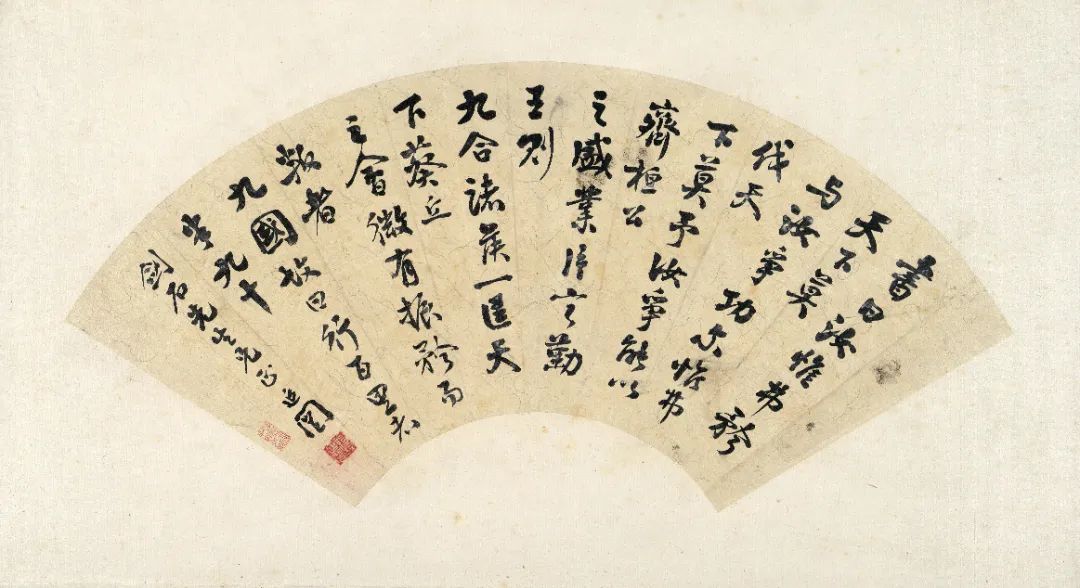 書曰汝惟弗矜
天下莫
与汝爭功惟弗
伐天
下莫予汝爭能以
齊桓公
之盛業片言勤
王則
九合諸侯一匡天
下葵丘
之會微有振矜而
叛者
九國故曰行百里者
半九十
石先生兄正